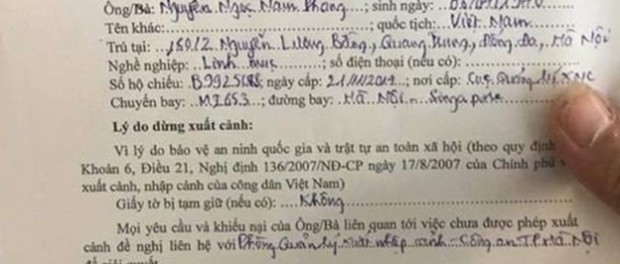 Ông/Bà: Nguyễn Ngọc Nam Phong; sinh ngày:
Tên khác:..................; quốc tịch: Việt Nam
Trú tại: ..180/2 Nguyễn Lương Bằng, Quang Trung, Đống Đa, Hà Nội
Nghề nghiệp: Linh mục; số điện thoại (nếu có):
Số hộ chiếu: ngày cấp: nơi cấp: Cục Quản lý XNC
Chuyến bay: MI653; đường bay: Hà Nội - Singapore
Lý do dừng xuất cảnh:
Vì lý do bảo vệ an ninh quốc gia và trật tự an toàn xã hội (theo quy định
Khoản 6, Điều 21, Nghị định 136/2007/NĐ-CP ngày 17/8/2007 của Chính phủ
xuất cảnh, nhập cảnh của công dân Việt Nam)
Giấy tờ bị tạm giữ (nếu có): ....Không
Mọi yêu cầu và khiếu nại của Ông/Bà liên quan tới việc chưa được phép xuất
cảnh đề nghị liên hệ với Phòng Quản lý xuất nhập cảnh - Công an TP Hà Nội
để giải quyết